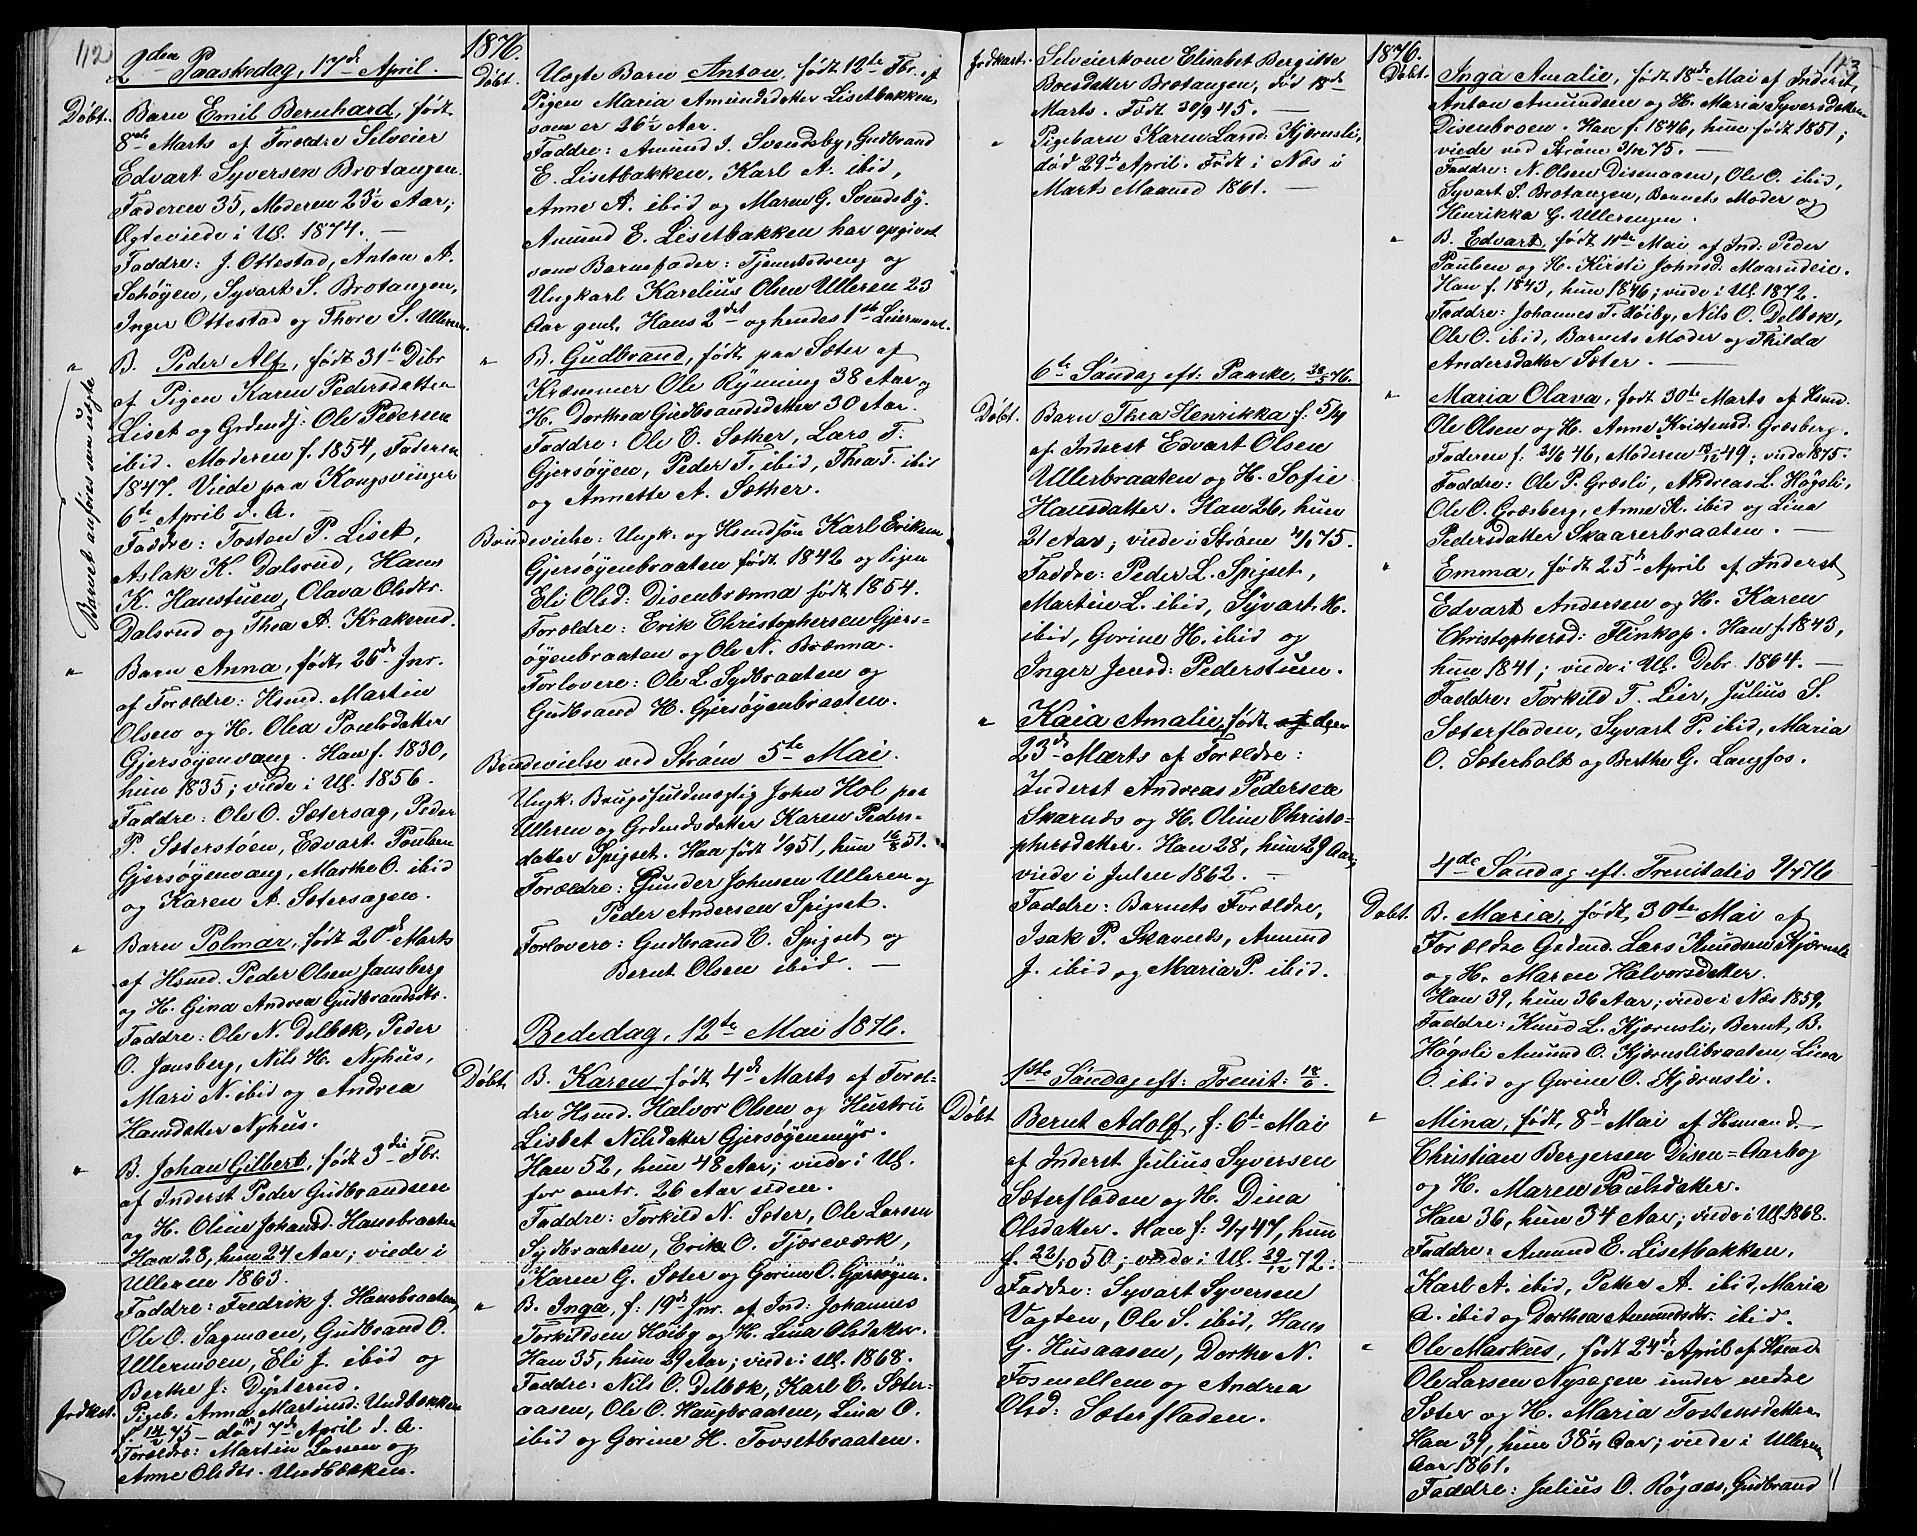 112
2den Paaskedag, 17de April.
Døbt. Barn Emil Bernhard, født
8de Marts af Forældre Selveier
Edvart Syversen Brotangen.
Faderen 35, Moderen 23½ Aar;
Ægteviede i Ul. 1874. —
Faddre: J. Ottestad, Anton A.
Schøyen, Syvart S. Brotangen,
Inger Ottestad og Thore S. Ulleren.
" B. Peder Alf, født 31te Dcbr
af Pigen Karen Pedersdatter
Liset og Grdmdsj: Ole Pedersen
ibid. Moderen f. 1854, Faderen
1847. Viede paa Kongsvinger
6te April d. A.
Barnet anføres som uægte
Faddre: Tosten P. Liset,
Aslak K. Dalsrud, Hans
K. Hanstuen, Olava Olsdtr.
Dalsrud og Thea A. Krakerud.
" Barn Anna, født 26de Jnr.
af Forældre: Hsmd. Martin
Olsen og H. Olea Paulsdatter
Gjersøyenvang. Han f. 1830,
hun 1835; viede i Ul. 1856.
Faddre: Ole O. Sætersag, Peder
P. Sæterstøen, Edvart Poulsen
Gjersøyenvang, Marthe O. ibid
og Karen A. Sætersagen.
" Barn Polmar, født 20de Marts
af Hsmd. Peder Olsen Jansberg
og H. Gina Andrea Gudbrandsdtr.
Faddre: Ole N. Delbæk, Peder
O. Jansberg, Nils H. Nyhus,
Mari N. ibid og Andrea
Hansdatter Nyhus.
" B. Johan Gilbert, født 3die Fbr.
af Inderst Peder Gudbrandsen
og H. Oline Johansd. Hansbraaten
Han 28, hun 24 Aar; viede i
Ulleren 1863.
Faddre: Fredrik J. Hansbraaten,
Ole O. Sagmoen, Gudbrand O.
Ullermoen, Eli J. ibid og
Berthe J. Dysterud.
Jrdkast. Pigeb. Anna Martinsd. Undbekken
f. 14/ 75 — død 7de April d. A.
Forældre: Martin Larsen og
Anne Olsdtr. Undbekken.
1876.
Døbt. Uægte Barn Anton, født 12te Fbr. af
Pigen Maria Amundsdatter Lisetbakken,
som er 26½ Aar.
Faddre: Amund J. Svendsby, Gudbrand
E. Lisetbakken, Karl A. ibid,
Anne A. ibid og Maren G. Svendsby.
Amund E. Lisetbakken har opgivet
som Barnefader: Tjenestedreng og
Ungkarl Karelius Olsen Ulleren 23
Aar gml. Hans 2det og hendes 1ste Leiermaal.
" B. Gudbrand, født paa Sæter af
Kræmmer Ole Rynning 38 Aar og
H. Dorthea Gudbrandsdatter 30 Aar.
Faddre: Ole C. Sæther, Lars T.
Gjersøyen, Peder T. ibid, Thea T. ibid
og Annette A. Sæther.
Brudevielse: Ungk. og Hsmdsøn Karl Eriksen
Gjersøyenbraaten født 1842 og Pigen
Eli Olsd: Disenbrænna født 1854.
Forældre: Erik Christophersen Gjers=
øyenbraaten og Ole N. Brænna.
Forlovere: Ole L. Sydbraaten og
Gudbrand H. Gjersøyenbraaten.
Brudevielse ved Strøm 5te Mai.
Ungk. Brugsfuldmægtig John Hol paa
Ulleren og Grdmdsdatter Karen Peders=
datter Spigset. Han født 1/9 51, hun 16/8 51.
Forældre: Gunder Johnsen Ulleren og
Peder Andersen Spigset.
Forlovere: Gudbrand C. Spigset og
Bernt Olsen ibid. —
Bededag, 12te Mai 1876.
Døbt B. Karen, født 4de Marts af Foræl=
dre Hsmd. Halvor Olsen og Hustru
Lisbet Nilsdatter Gjersøyenmyr.
Han 52, hun 48 Aar; viede i Ul.
for omtr. 26 Aar siden.
Faddre: Torkild N. Sæter, Ole Larsen
Sydbraaten, Erik O. Tjæreværk,
Karen G. Sæter og Gorine O. Gjersøyen.
" B. Inga, f. 19de Jnr. af Ind: Johannes
Torkildsen Høiby og H. Lina Olsdatter.
Han 35, hun 29 Aar; viede i Ul. 1868.
Faddre: Nils O. Delbæk, Karl C. Sæter=
aasen, Ole O. Haugbraaten, Lina O.
ibid og Gorine H. Tovsetbraaten.
Jrdkast. Selveierkone Elisabet Bergitte
Boesdatter Brotangen, død 18de
Marts. Født 30/9 45. —
" Pigebarn Karen Larsd. Kjørnsli,
død 29de April. Født i Næs i
Marts Maaned 1861. —
6te Søndag eft: Paaske, 28/5 76.
Døbt. Barn Thea Henrikka f. 5/4
af Inderst Edvart Olsen
Ullerbraaten og H. Sofie
Hansdatter. Han 26, hun
21 Aar; viede i Strøm 75.
Faddre: Peder L. Spigset,
Martin L. ibid, Syvart H.
ibid, Gorine H. ibid og
Inger Jensd: Pederstuen.
" Kaia Amalie, født den
23de Marts af Forældre:
Inderst Andreas Pedersen
Skarnæs og H. Oline Christo=
phersdatter. Han 28, hun 29 Aar,
viede i Julen 1862. —
Faddre: Barnets Forældre,
Isak P. Skarnæs, Amund
J. ibid og Maria P. ibid.
1ste Søndag eft: Trenit: 18/6.
Døbt Bernt Adolf, f. 6te Mai
af Inderst Julius Syversen
Sæterfladen og H. Dina
Olsdatter. Han f. 9/7 47, hun
f. 22/10 50; viede i Ul. 29/12 72.
Faddre: Syvart Syversen
Vagten, Ole S. ibid, Hans
G. Husaasen, Dorthe N.
Fosmellem og Andrea
Olsd: Sæterfladen.
1876.
113
Døbt. Inga Amalie, født 18de Mai af Inderst
Anton Amundsen og H. Maria Syversdatter
Disenbroen. Han f. 1846, hun født 1851;
viede ved Strøm 3/12 75. —
Faddre: N. Olsen Disenaaen, Ole O. ibid,
Syvart S. Brotangen, Barnets Moder og
Henrikka G. Ullerengen.
" B. Edvart, født 11te Mai af Ind: Peder
Paulsen og H. Kirsti Johnsd. Maarudeie.
Han f. 1843, hun 1846; viede i Ul. 1872.
Faddre: Johannes T. Høiby, Nils O. Delbæk,
Ole O. ibid, Barnets Moder og Thilda
Andersdatter Sæter. —
" Maria Olava, født 30te Marts af Hsmd.
Ole Olsen og H. Anne Kristensd. Græsberg.
Faderen f. 46, Moderen 49; viede 1875.
Faddre: Ole P. Græsli, Andreas L. Høgsli,
Ole O. Græsberg, Anne K. ibid og Lina
Pedersdatter Skaarerbraaten. —
" Emma, født 25de April af Inderst
Edvart Andersen og H. Karen
Christophersd: Flinkop. Han f. 1843,
hun 1841; viede i Ul. Dcbr. 1864. —
Faddre: Torkild T. Lier, Julius S.
Sæterfladen, Syvart P. ibid, Maria
O. Sæterholt og Berthe G. Langfos.
4de Søndag eft. Trenitatis 9/7 76
Døbt. B. Maria, født 30te Mai af
Forældre Grdmd. Lars Knudsen Kjørnsli
og H. Maren Halvorsdatter.
Han 39, hun 36 Aar; viede i Næs 1859.
Faddre: Knud L. Kjørnsli, Bernt B.
Høgsli, Amund O. Kjørnslibraaten, Lina
O. ibid og Gorine O. Kjørnsli.
" Mina, født 8de Mai af Hsmand
Christian Bergersen Disen=Aarbog
og H. Maren Paulsdatter.
Han 36, hun 34 Aar; viede i Ul. 1868.
Faddre: Amund E. Lisetbakken,
Karl A. ibid, Petter A. ibid, Maria
A. ibid og Dorthea Amundsdtr. ibid.
" Ole Markus, født 24de April af Hsmd
Ole Larsen Nysagen under nedre
Sæter og H. Maria Tostensdatter
Han 39, hun 38½ Aar; viede i Ulleren
Aar 1861.
Faddre: Julius O. Røgaas, Gudbrand